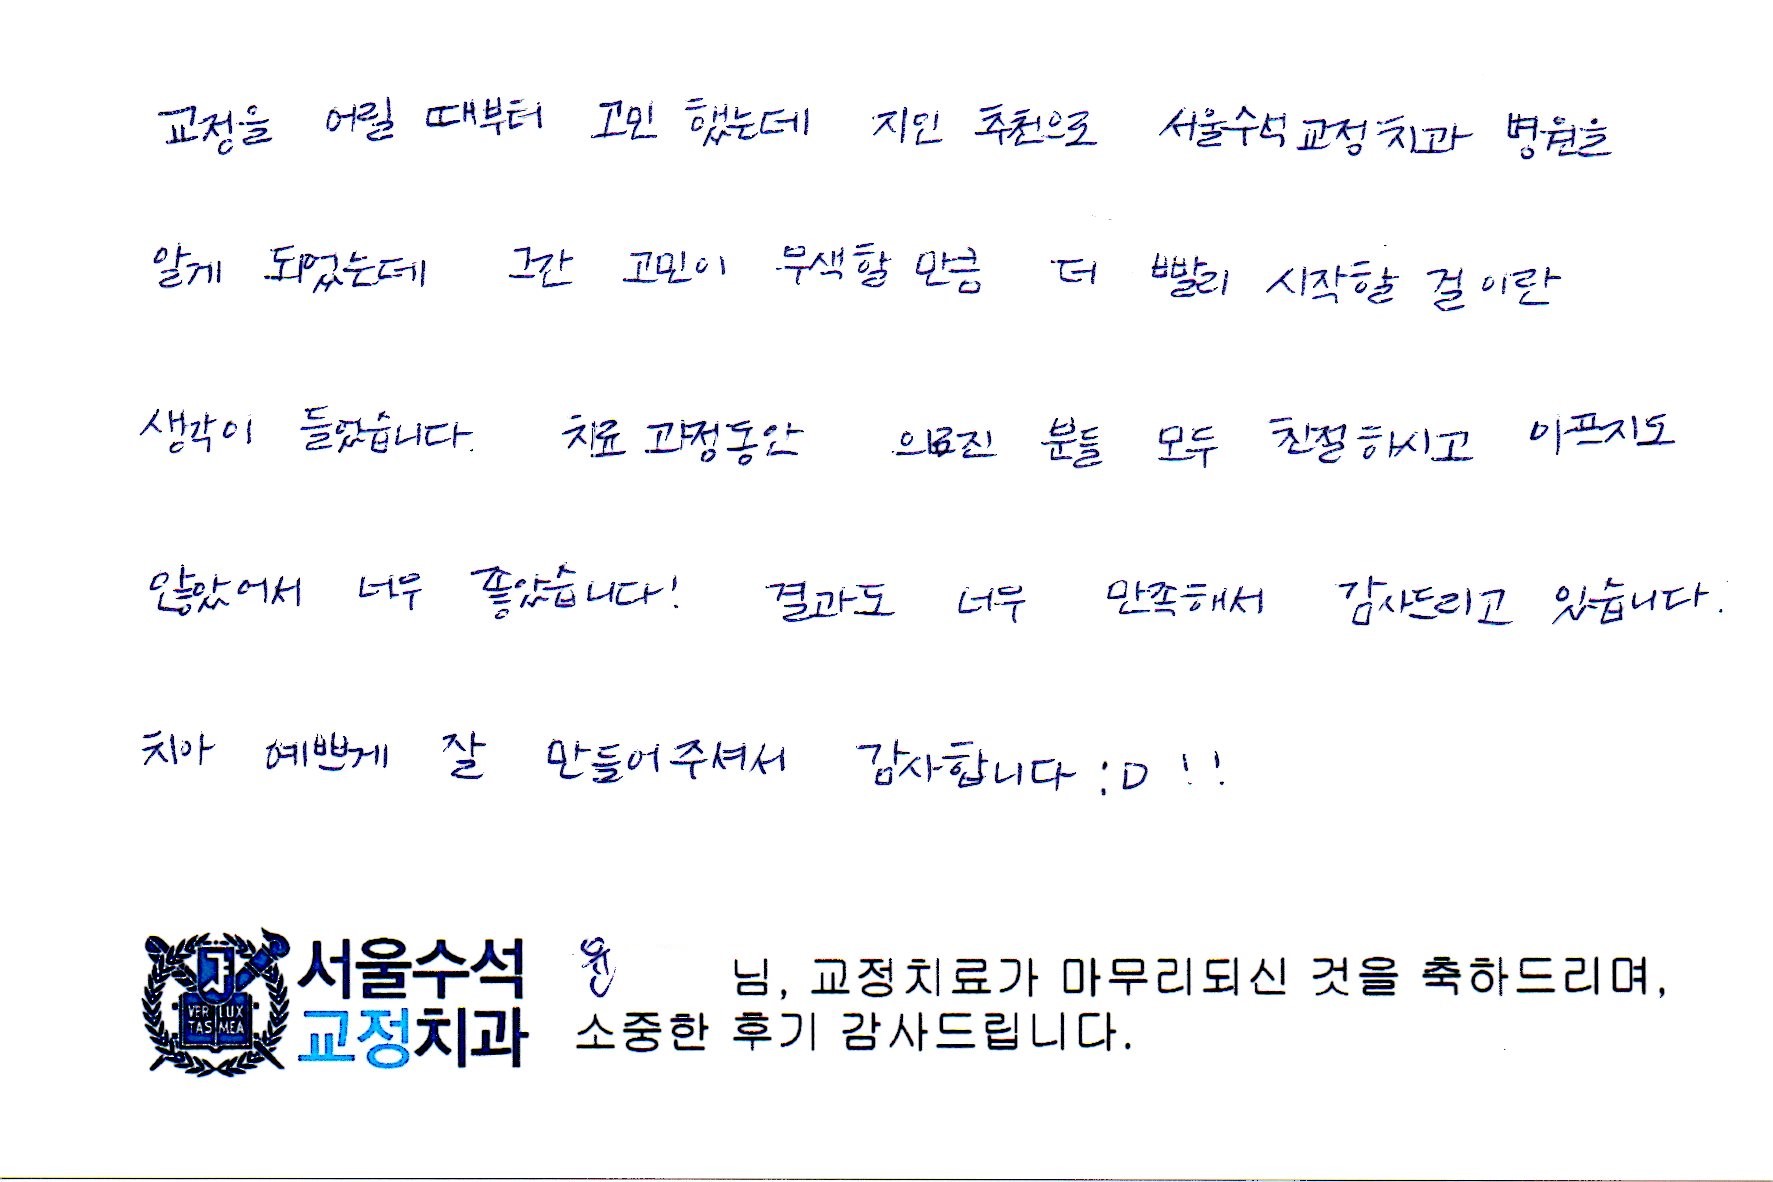 교정을 어릴 때부터 고민 했는데 지인 추천으로 서울수석교정치과 병원을
알게 되었는데 그간 고민이 무색할 만큼 더 빨리 시작할 걸 이란
생각이 들었습니다. 치료 과정동안 의료진 분들 모두 친절하시고 아프지도
않았어서 너무 좋았습니다! 결과도 너무 만족해서 감사드리고 있습니다.
치아 예쁘게 잘 만들어주셔서 감사합니다 :D !!
서울수석
교정치과
VERI LUX
TAS MEA
윤 님, 교정치료가 마무리되신 것을 축하드리며,
소중한 후기 감사드립니다.